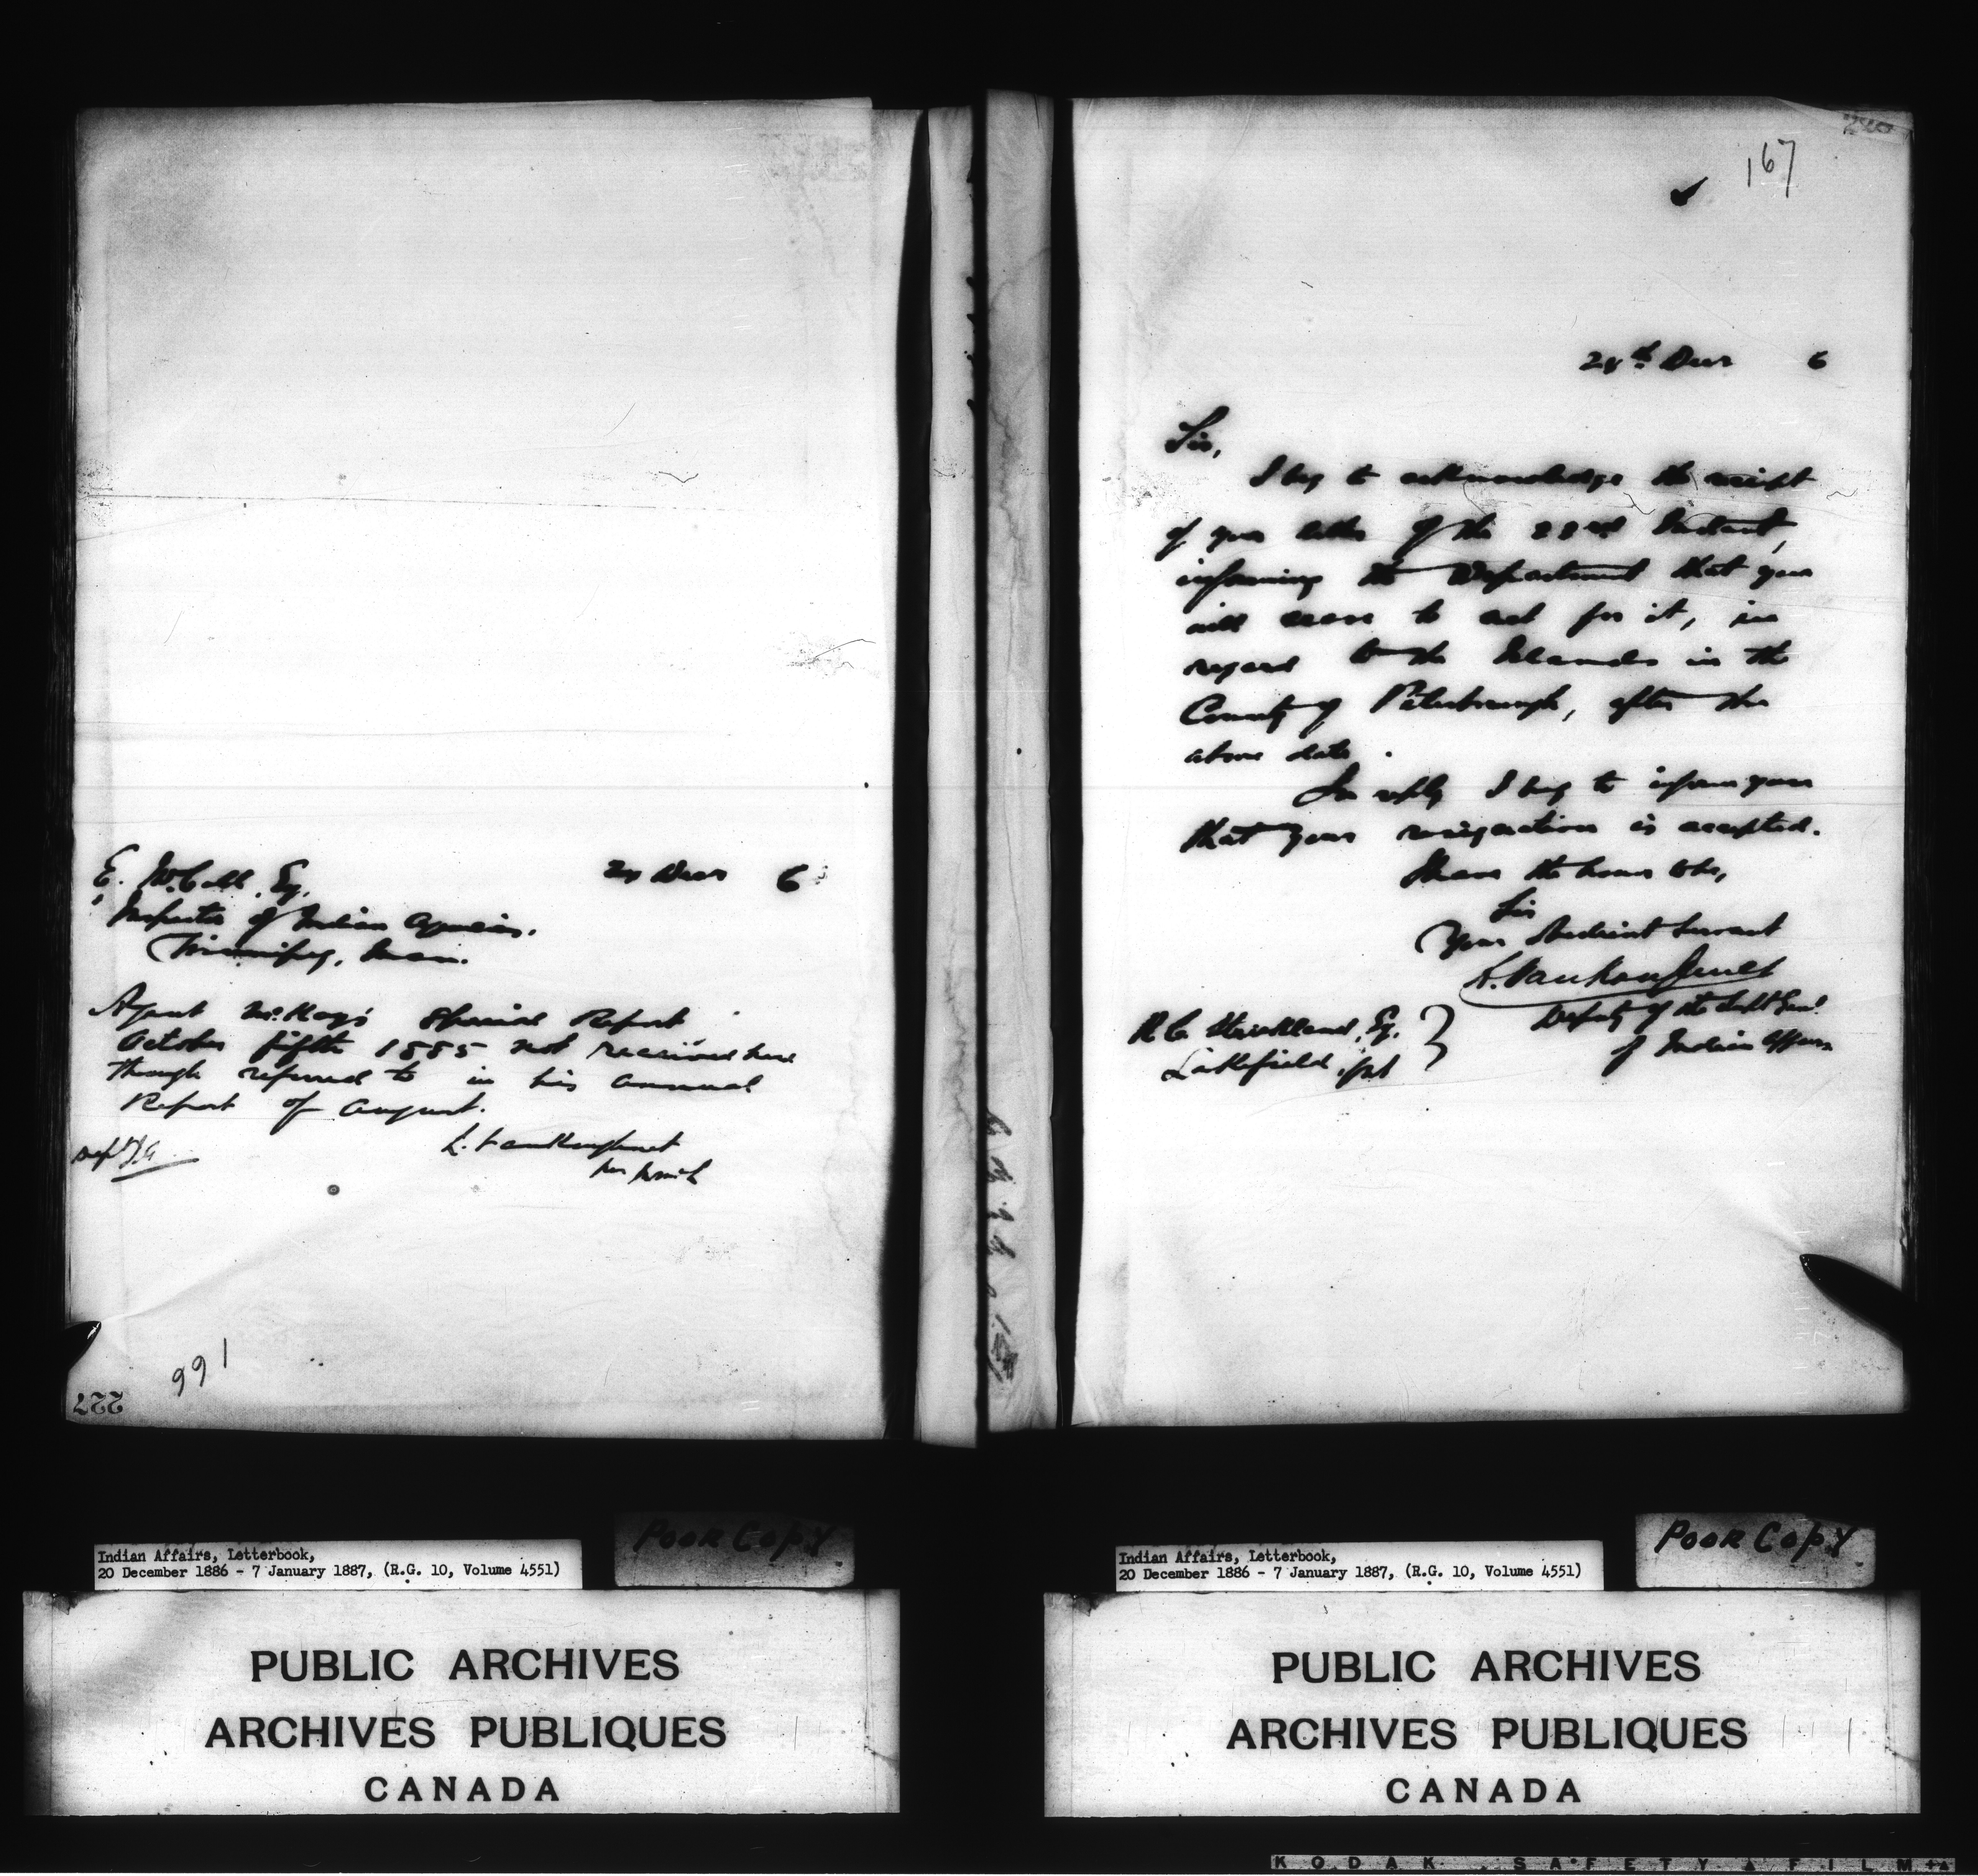 E. McColl, Esq. 28 Decr 6
Inspector of Indian Agencies.
Winnipeg, Man.
Agent McKay's Special Report
October fifth 1885 not received here
though referred to in his annual
Report of August.
L. Vankoughnet
Dept I.A.
166
227
167
28th Decr 6
Sir,
I beg to acknowledge the receipt
of your letter of the 22nd Instant,
informing the Department that you
will cease to act for it, in
regard to the Islands in the
County of Peterborough, after the
above date.
In reply I beg to inform you
that your resignation is accepted.
I have the honor to be,
Sir
Your Obedient Servant
L. Vankoughnet
Deputy of the Supt Genl
of Indian Affairs
R C Strickland, Esq.
Lakefield, Ont
Indian Affairs, Letterbook,
20 December 1886 - 7 January 1887, (R.G. 10, Volume 4551)
Poor Copy
PUBLIC ARCHIVES
ARCHIVES PUBLIQUES
CANADA
Indian Affairs, Letterbook,
20 December 1886 - 7 January 1887, (R.G. 10, Volume 4551)
Poor Copy
PUBLIC ARCHIVES
ARCHIVES PUBLIQUES
CANADA
KODAK SAFETY FILM